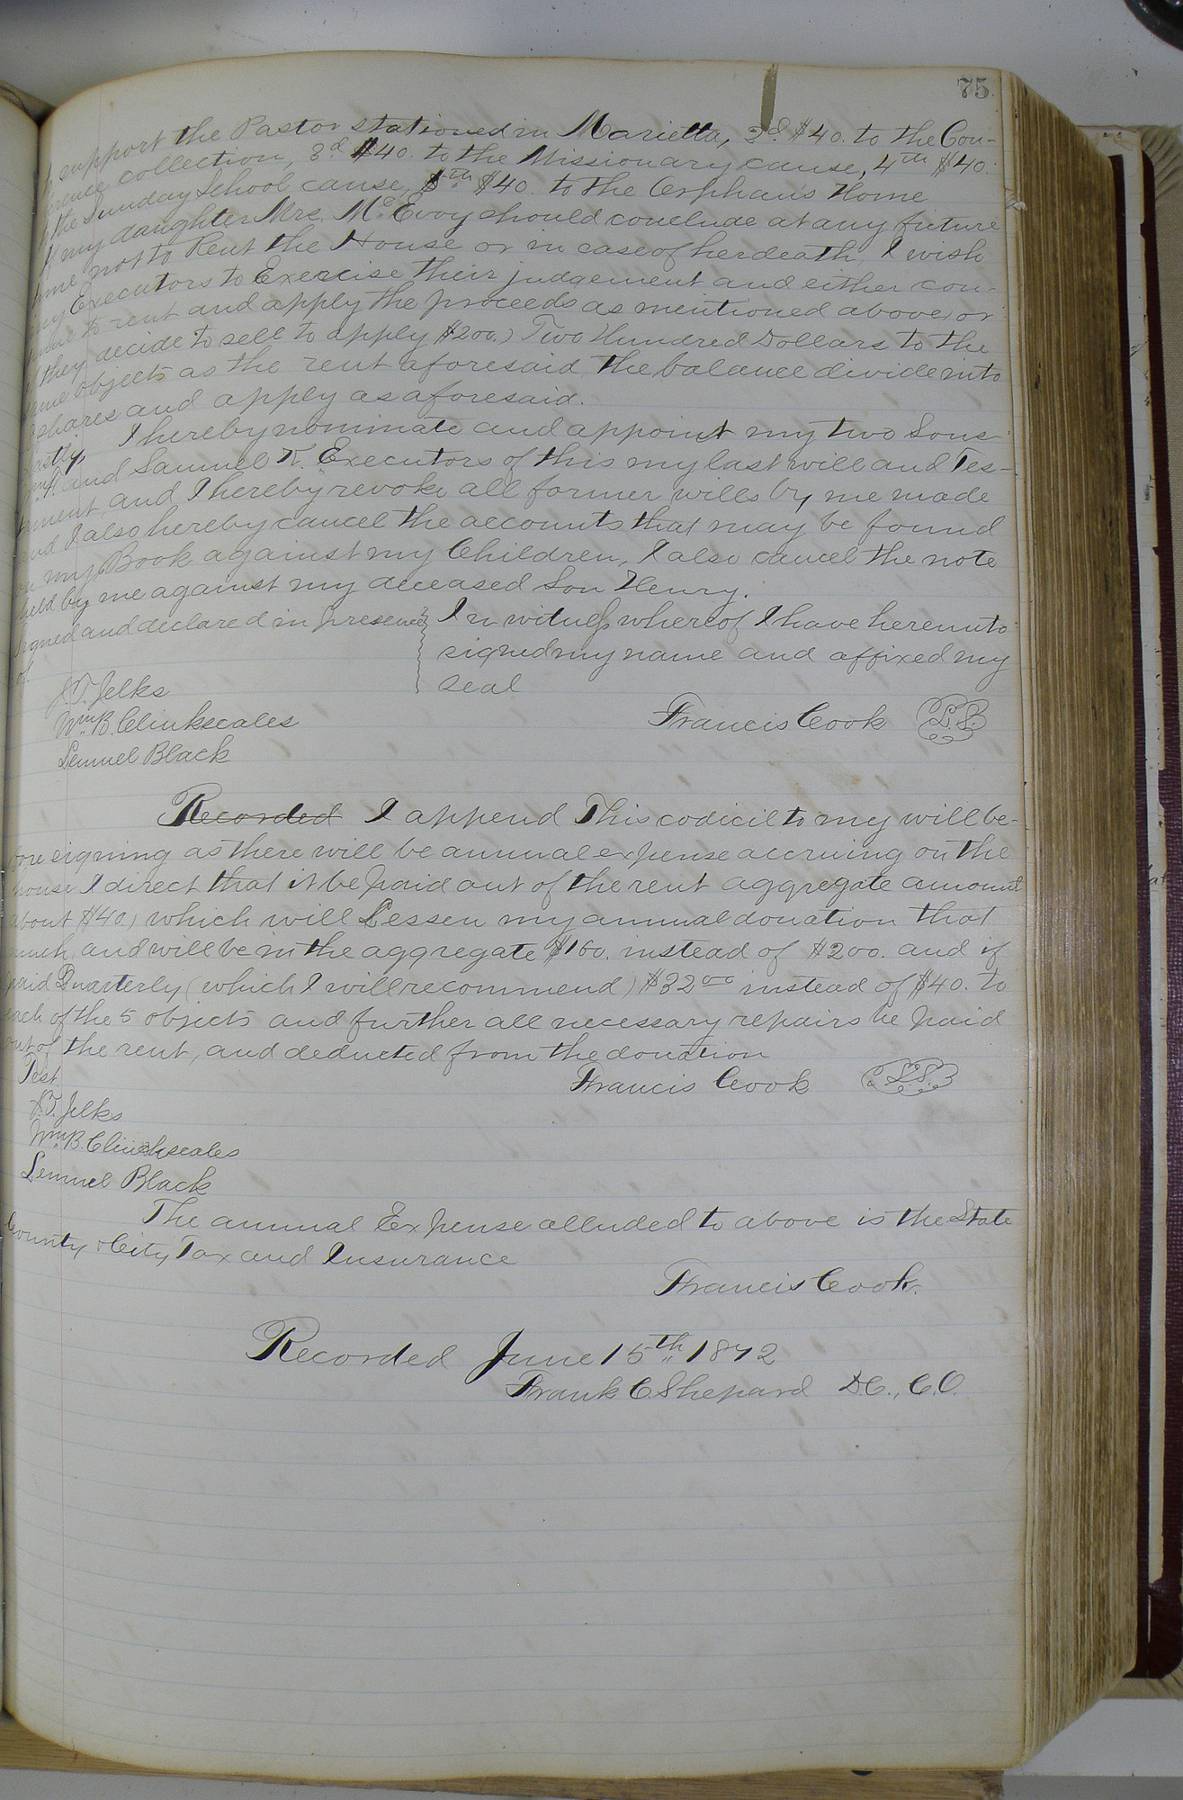 75
support the Pastor stationed in Marietta, 3d. $40. to the Con-
collection, 3d. $40. to the Missionary cause, 4th $40.
the Sunday School cause, 5th $40. to the Orphans Home
If my daughter Mrs. McEvoy should conclude at any future
not to Rent the House or in case of her death, I wish
my Executors to Exercise their judgement and either con-
to rent and apply the proceeds as mentioned above, or
they decide to sell to apply $200.) Two Hundred Dollars to the
objects as the rent aforesaid the balance divide into
shares and apply as aforesaid.
I hereby nominate and appoint my two Sons
and Samuel K. Executors of this my last will and Tes-
and I hereby revoke all former wills by me made
and I also hereby cancel the accounts that may be found
my Book against my Children, I also cancel the note
held by me against my deceased Son Henry.
signed and declared in presence
of
In witness whereof I have hereunto
signed my name and affixed my
seal
J.T. Jelks
Wm. B. Clinkscales
Lemuel Black
Francis Cook L.S.
Recorded I append This codicil to my will be-
fore signing as there will be annual expense accruing on the
house I direct that it be paid out of the rent aggregate amount
about $40) which will Lessen my annual donation that
much, and will be in the aggregate $160. instead of $200. and if
paid Quarterly (which I will recommend) $32 00 instead of $40. to
each of the 5 objects and further all necessary repairs be paid
out of the rent, and deducted from the donation
Test
Francis Cook L.S.
J.T. Jelks
Wm. B. Clinckscales
Lemuel Black
The annual Expense alluded to above is the State
County & City Tax and Insurance
Francis Cook.
Recorded June 15th 1872
Frank C. Shepard D.C., C.O.